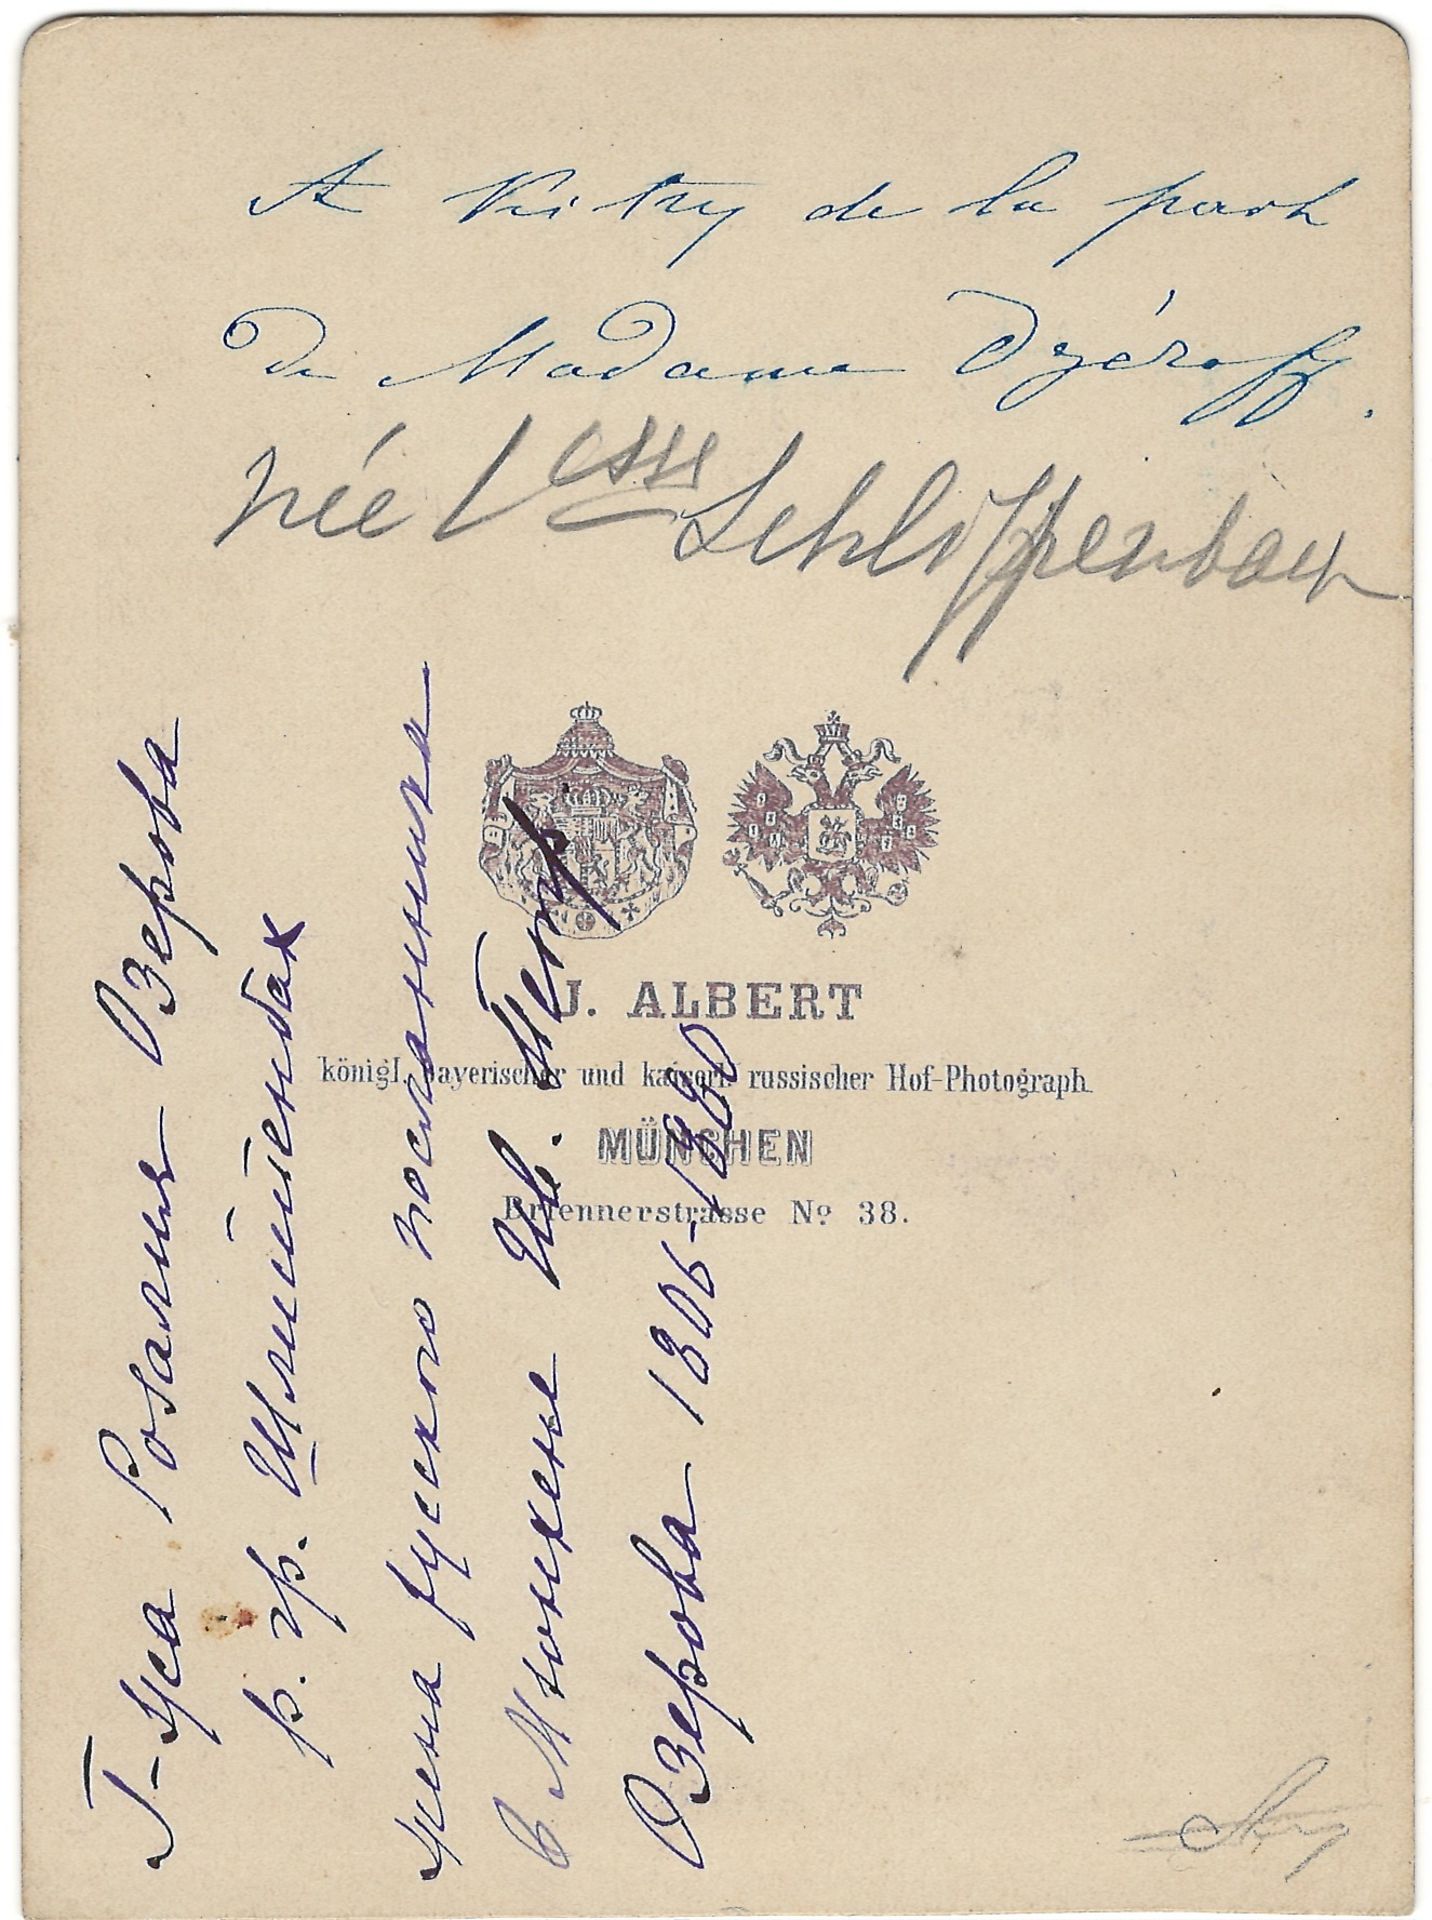 A Vitry de la part
De Madame Ozéroff.
née Csse Schlippenbach
J. ALBERT
königl. bayerischer und kaiserl. russischer Hof-Photograph.
MÜNCHEN
Briennerstrasse No 38.
Г-жа Розалия Озерова
р. гр. Шлиппенбах
жена русского посланника
в Мюнхене Ив. Петр.
Озерова 1806-1880